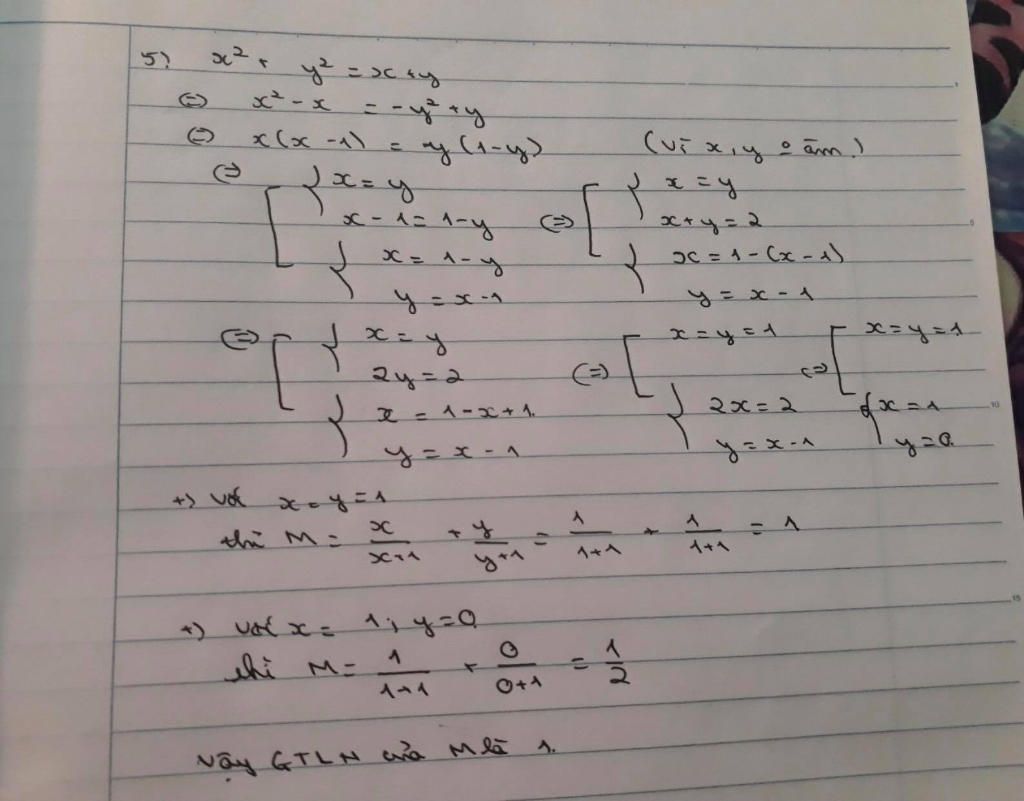 5) x² + y² = x + y
⇔ x² - x = -y² + y
⇔ x(x - 1) = y(1-y) (vì x, y o âm)
⇔ [ { x = y
x - 1 = 1 - y
{ x = 1 - y
y = x - 1
⇔ [ { x = y
x + y = 2
{ x = 1 - (x - 1)
y = x - 1
⇔ [ { x = y
2y = 2
{ x = 1 - x + 1
y = x - 1
⇔ [ x = y = 1
{ 2x = 2
y = x - 1
⇔ [ x = y = 1
{ x = 1
y = 0
+) với x = y = 1
thì M = x/(x+1) + y/(y+1) = 1/(1+1) + 1/(1+1) = 1
+) với x = 1; y = 0
thì M = 1/(1+1) + 0/(0+1) = 1/2
Vậy GTLN của M là 1.
5
10
15